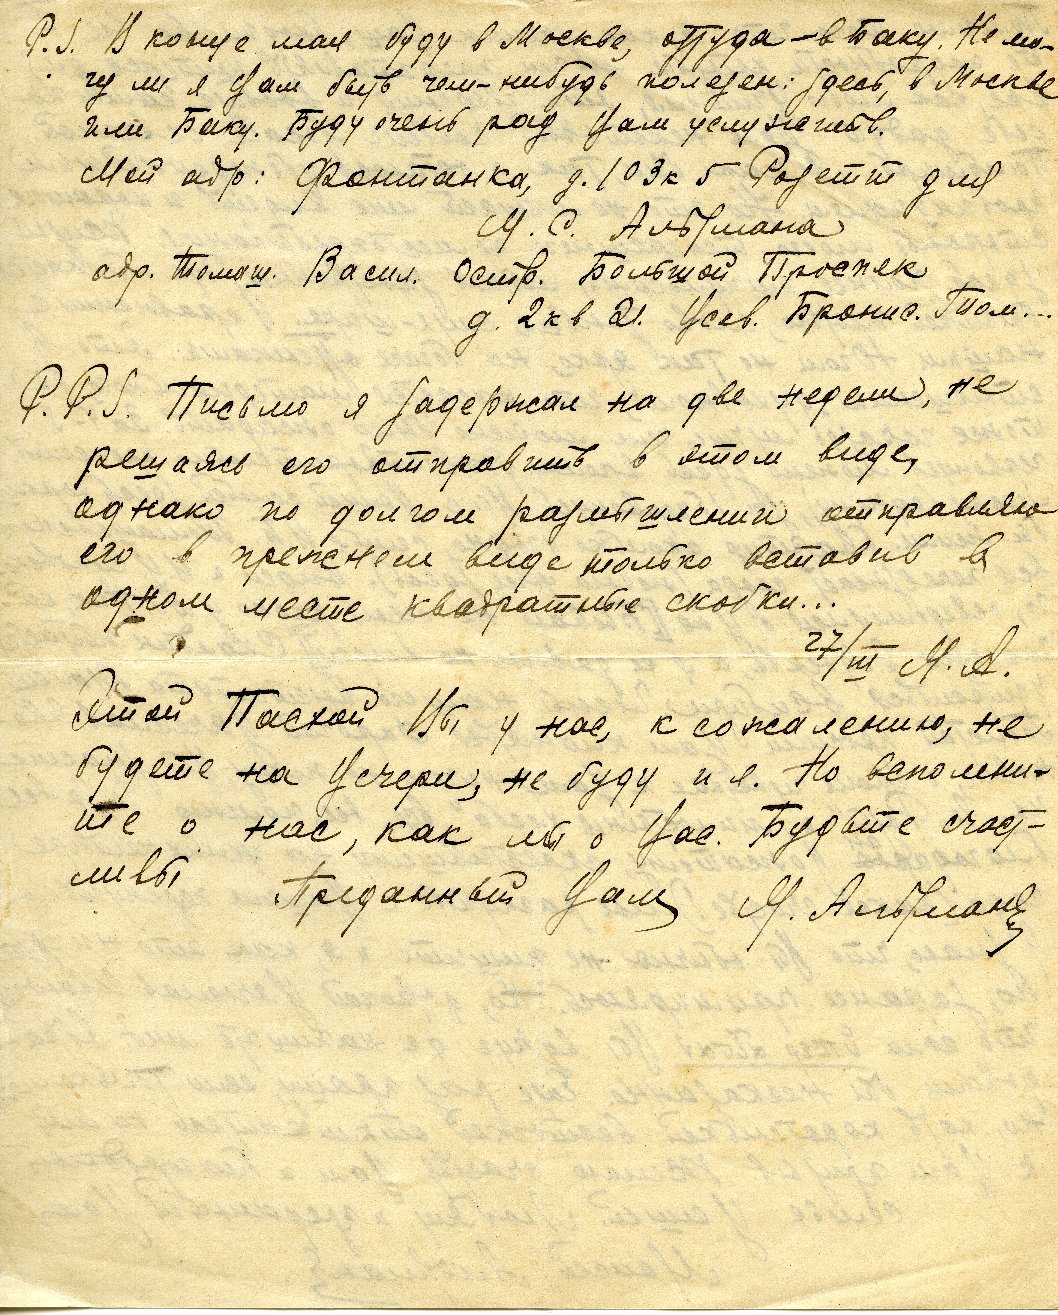 P.S. В конце мая буду в Москве, оттуда – в Баку. Не мо-
гу ли я Вам быть чем-нибудь полезен: здесь, в Москве
или Баку. Буду очень рад Вам услужить.
Мой адр: Фонтанка, д. 103 к 5 Розетт для
М. С. Альтмана
адр. Томаш. Васил. Остр. Большой Проспек
д. 2 кв 21. Всев. Бронис. Том...
P.P.S. Письмо я задержал на две недели, не
решаясь его отправить в этом виде,
однако по долгом размышлении отправляю
его в прежнем виде только вставив в
одном месте квадратные скобки...
27/III М. А.
Этой Пасхой Вы у нас, к сожалению, не
будете на Вечери, не буду и я. Но вспомни-
те о нас, как мы о Вас. Будьте счаст-
ливы Преданный Вам М. Альтман